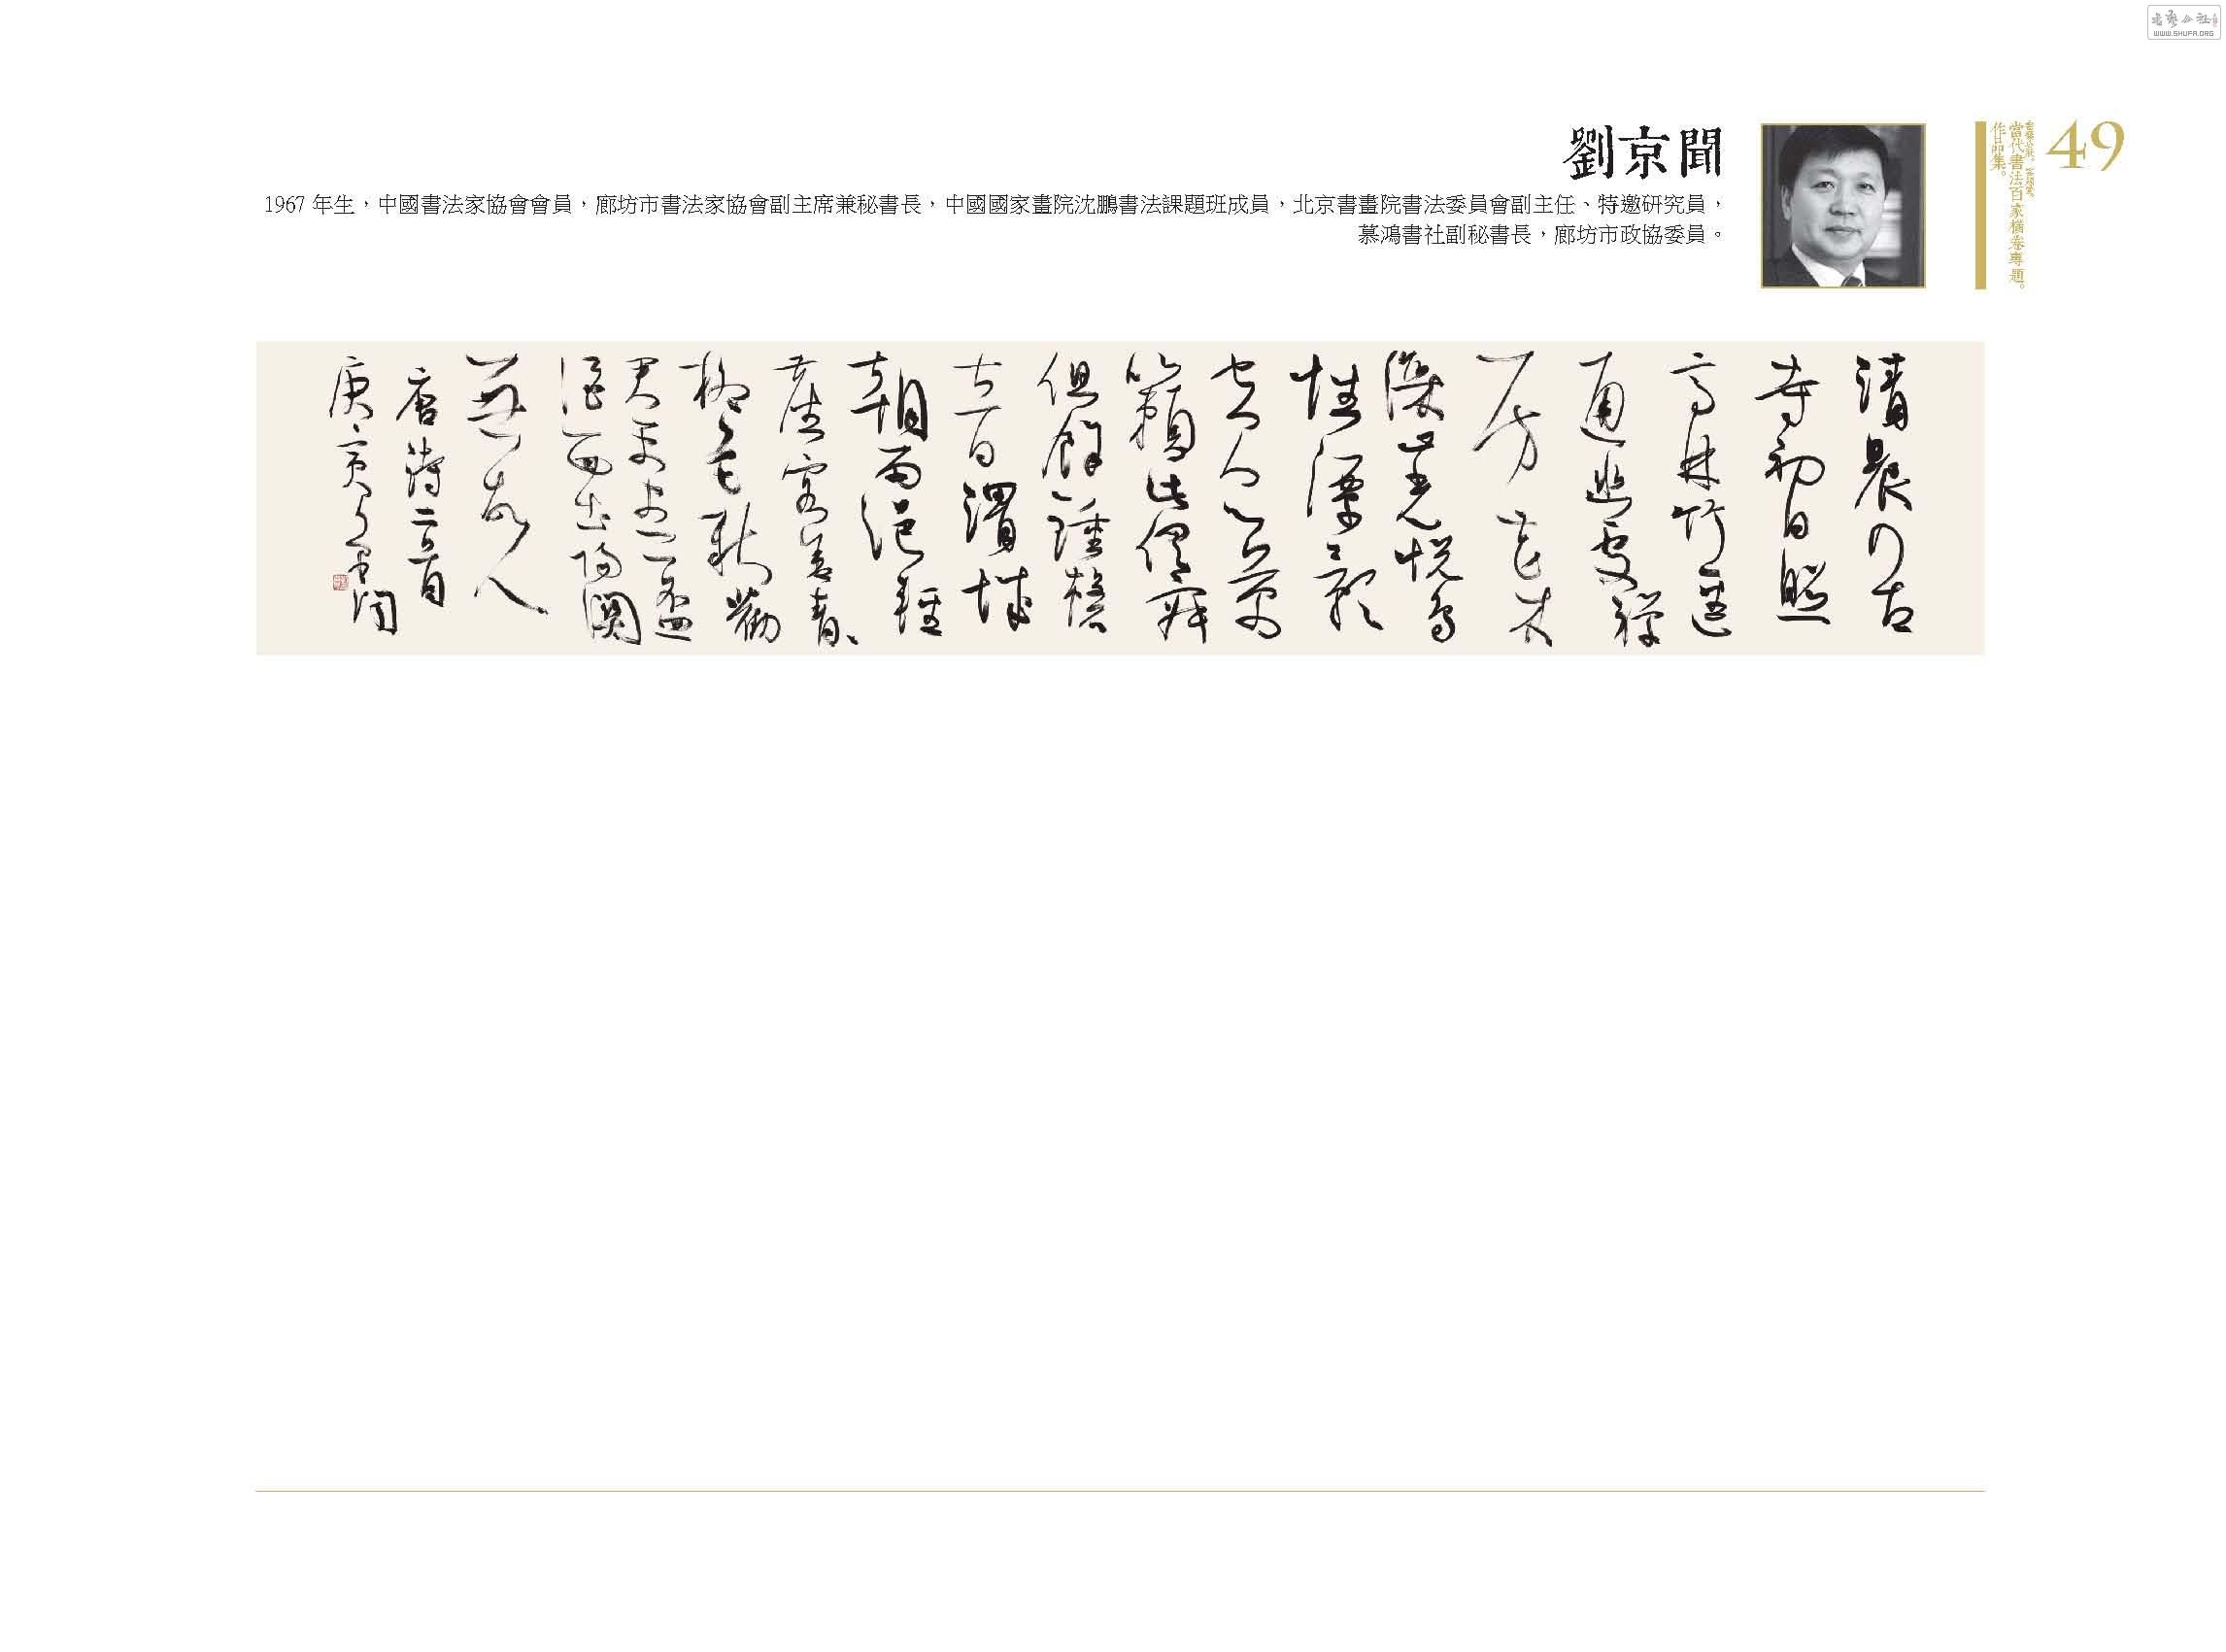 書法公社
WWW.SHUFA.ORG
49
當代書法百家橫卷專題。
作品集。
劉京聞
1967 年生，中國書法家協會會員，廊坊市書法家協會副主席兼秘書長，中國國家畫院沈鵬書法課題班成員，北京書畫院書法委員會副主任、特邀研究員，
慕鴻書社副秘書長，廊坊市政協委員。
清晨入古
寺初日照
高林竹逕
通幽處禅
房花木
深山光悦鳥
性潭影
空人心萬
籟此俱寂
但餘鐘磬
音渭城
朝雨浥輕
塵客舍青
柳色新勸
君更盡一杯
酒西出陽關
無故人
唐詩二首
庚寅京聞